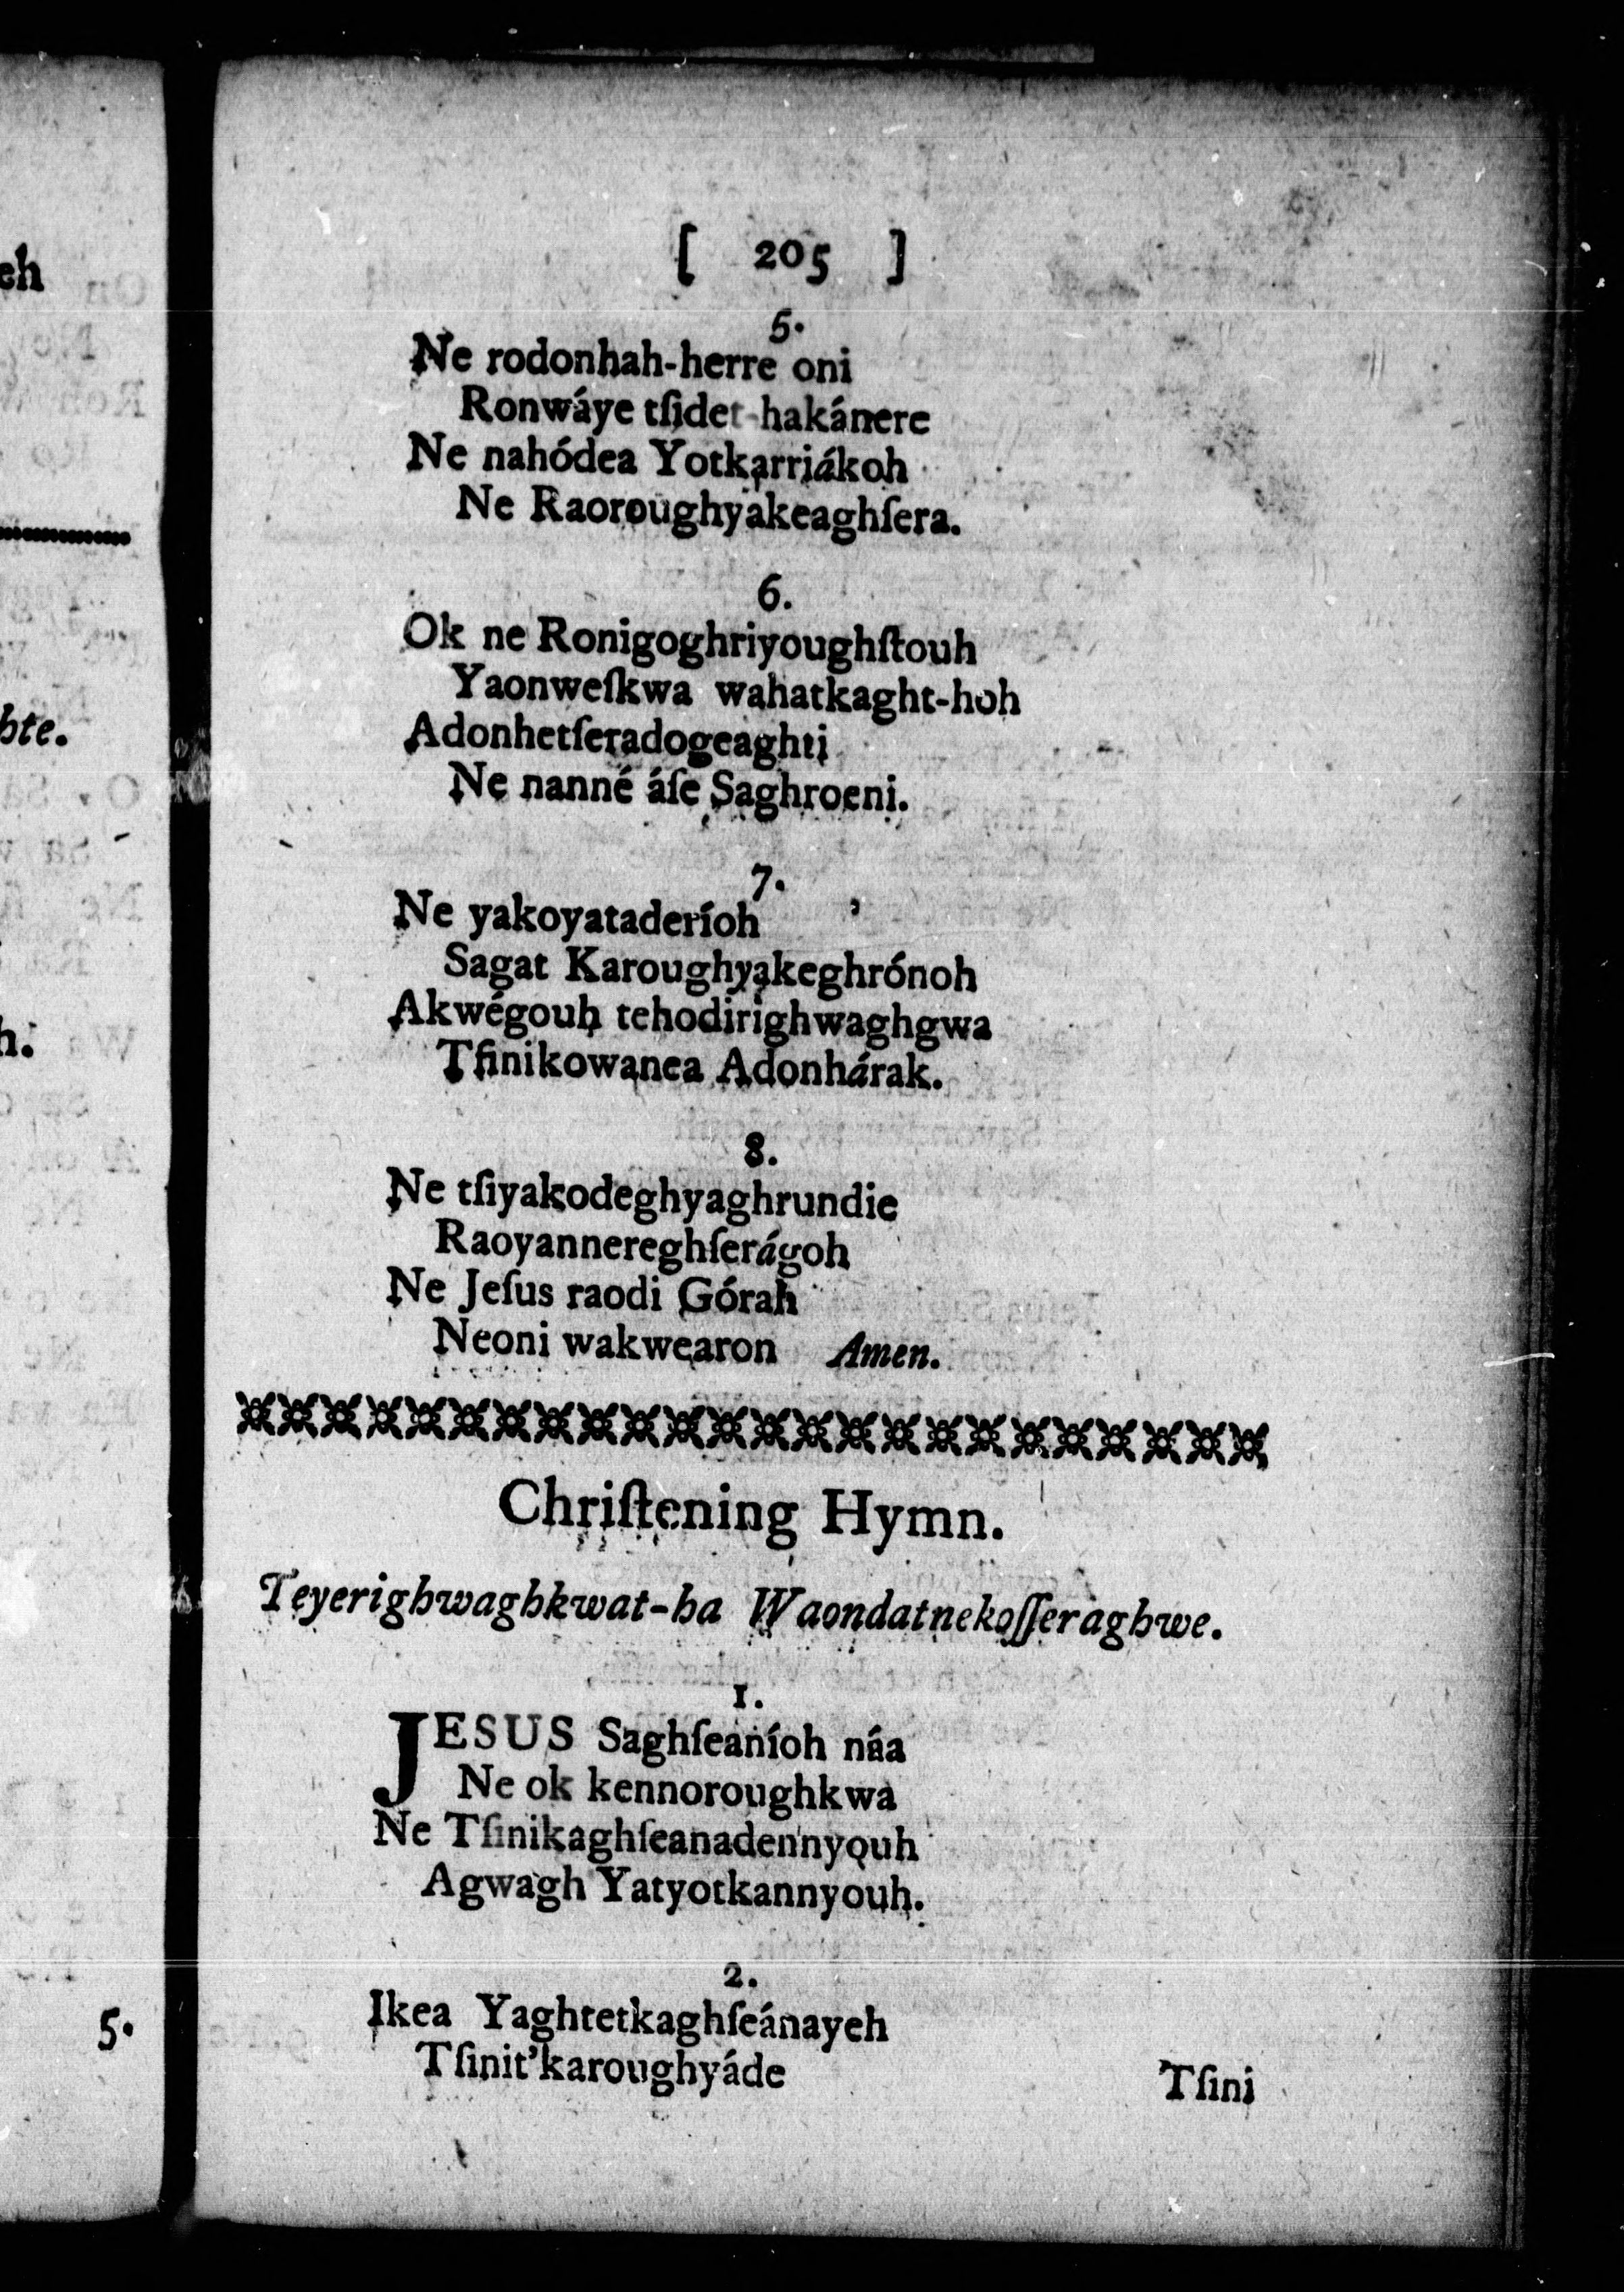 [ 205 ]
5.
Ne rodonhah-herre oni
Ronwáye tſidet-hakánere
Ne nahódea Yotkarriákoh
Ne Raoroughyakeaghſera.
6.
Ok ne Ronigoghriyoughſtouh
Yaonweſkwa wahatkaght-hoh
Adonhetſeradogeaghti
Ne nanné áſe Saghroeni.
7.
Ne yakoyataderíoh
Sagat Karoughyakeghrónoh
Akwégouh tehodirighwaghgwa
Tſinikowanea Adonhárak.
8.
Ne tſiyakodeghyaghrundie
Raoyannereghſerágoh
Ne Jeſus raodi Górah
Neoni wakwearon Amen.
Chriſtening Hymn.
Teyerighwaghkwat-ha Waondatnekoſſeraghwe.
1.
JESUS Saghſeaníoh náa
Ne ok kennoroughkwa
Ne Tſinikaghſeanadennyouh
Agwagh Yatyotkannyouh.
2.
Ikea Yaghtetkaghſeánayeh
Tſinit'karoughyáde
Tſini
eh
hte.
h.
5.